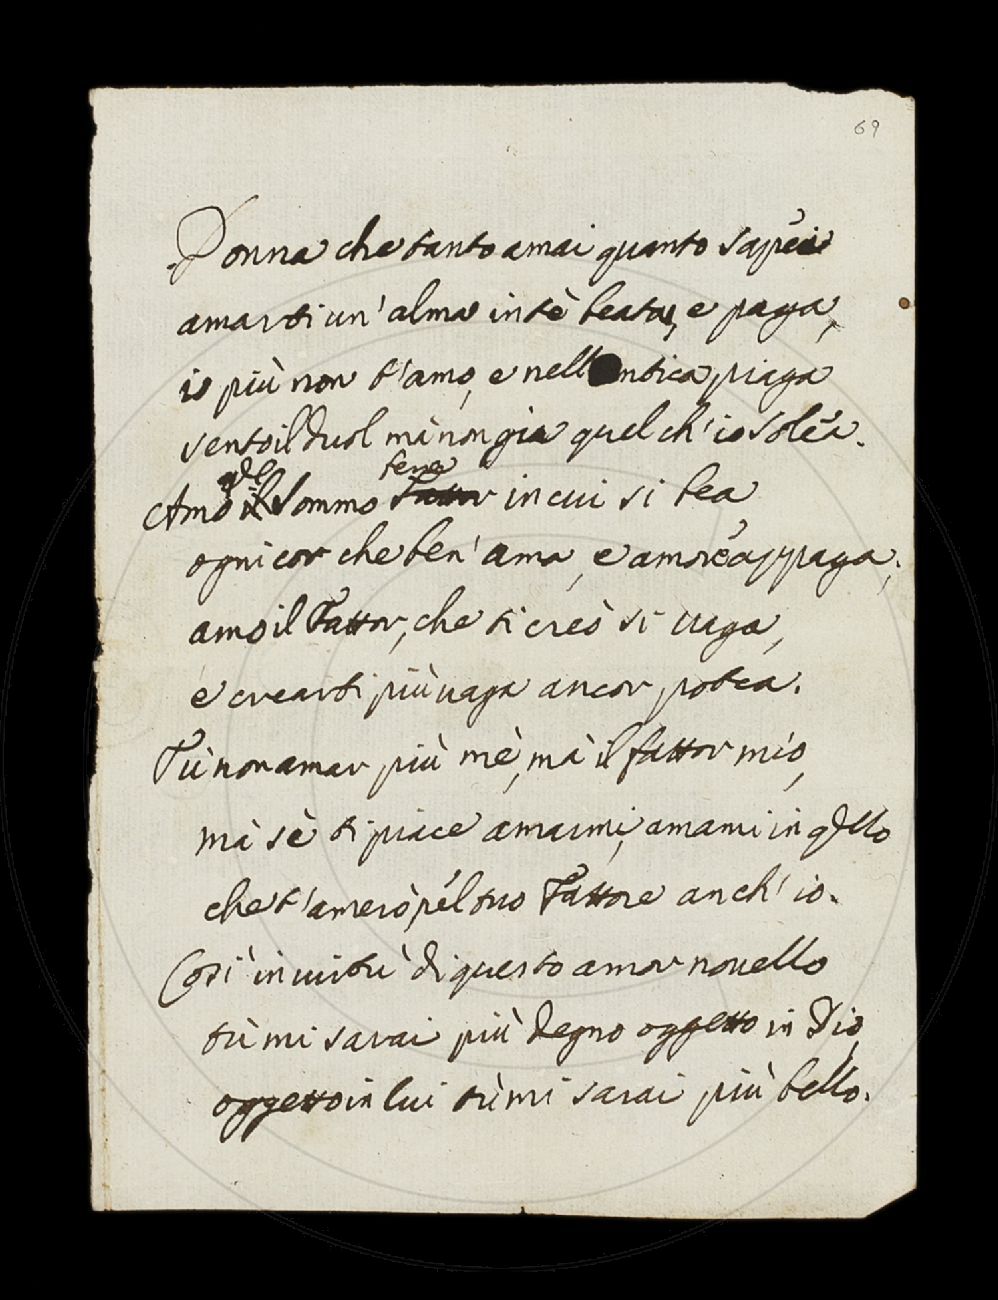 69
Donna che tanto amai quanto sapéa
amarti un' alma in tè beata, e paga,
io più non t'amo, e nell'antica piaga
sento il duol mà non già quel ch' io soléa.
qle bene
Amo il Sommo Fattor in cui si bea
ogni cor che ben' ama, e amor é appaga;
amo il Fattor, che ti creò si uaga,
e crearti più uaga ancor potea.
Tù non amar più mè, mà il fattor mio,
mà sè ti piace amarmi, amami in qllo
che t'amerò pél tuo Fattore anch' io.
Cosi' in uirtù di questo amor nouello
tù mi sarai più degno oggetto in Dio,
oggetto in lui tù mi sarai più bello.